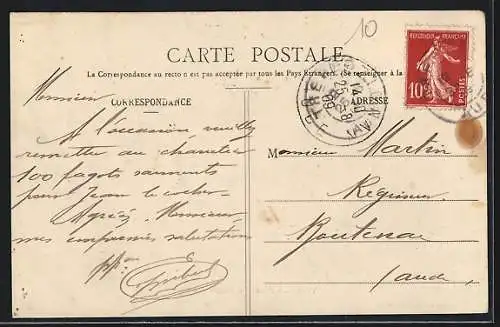 10
CARTE POSTALE
La Correspondance au recto n'est pas acceptée par tous les Pays Étrangers. (Se renseigner à la
CORRESPONDANCE
ADRESSE
REPUBLIQUE FRANÇAISE
10c
POSTES
Monsieur
A l'occasion veuillez
remettre au charretier
100 fagots sarments
pour Jean le cocher
Agréez, Monsieur,
mes empressées salutations
Monsieur Martin
Régisseur
Boutenac
(Aude)